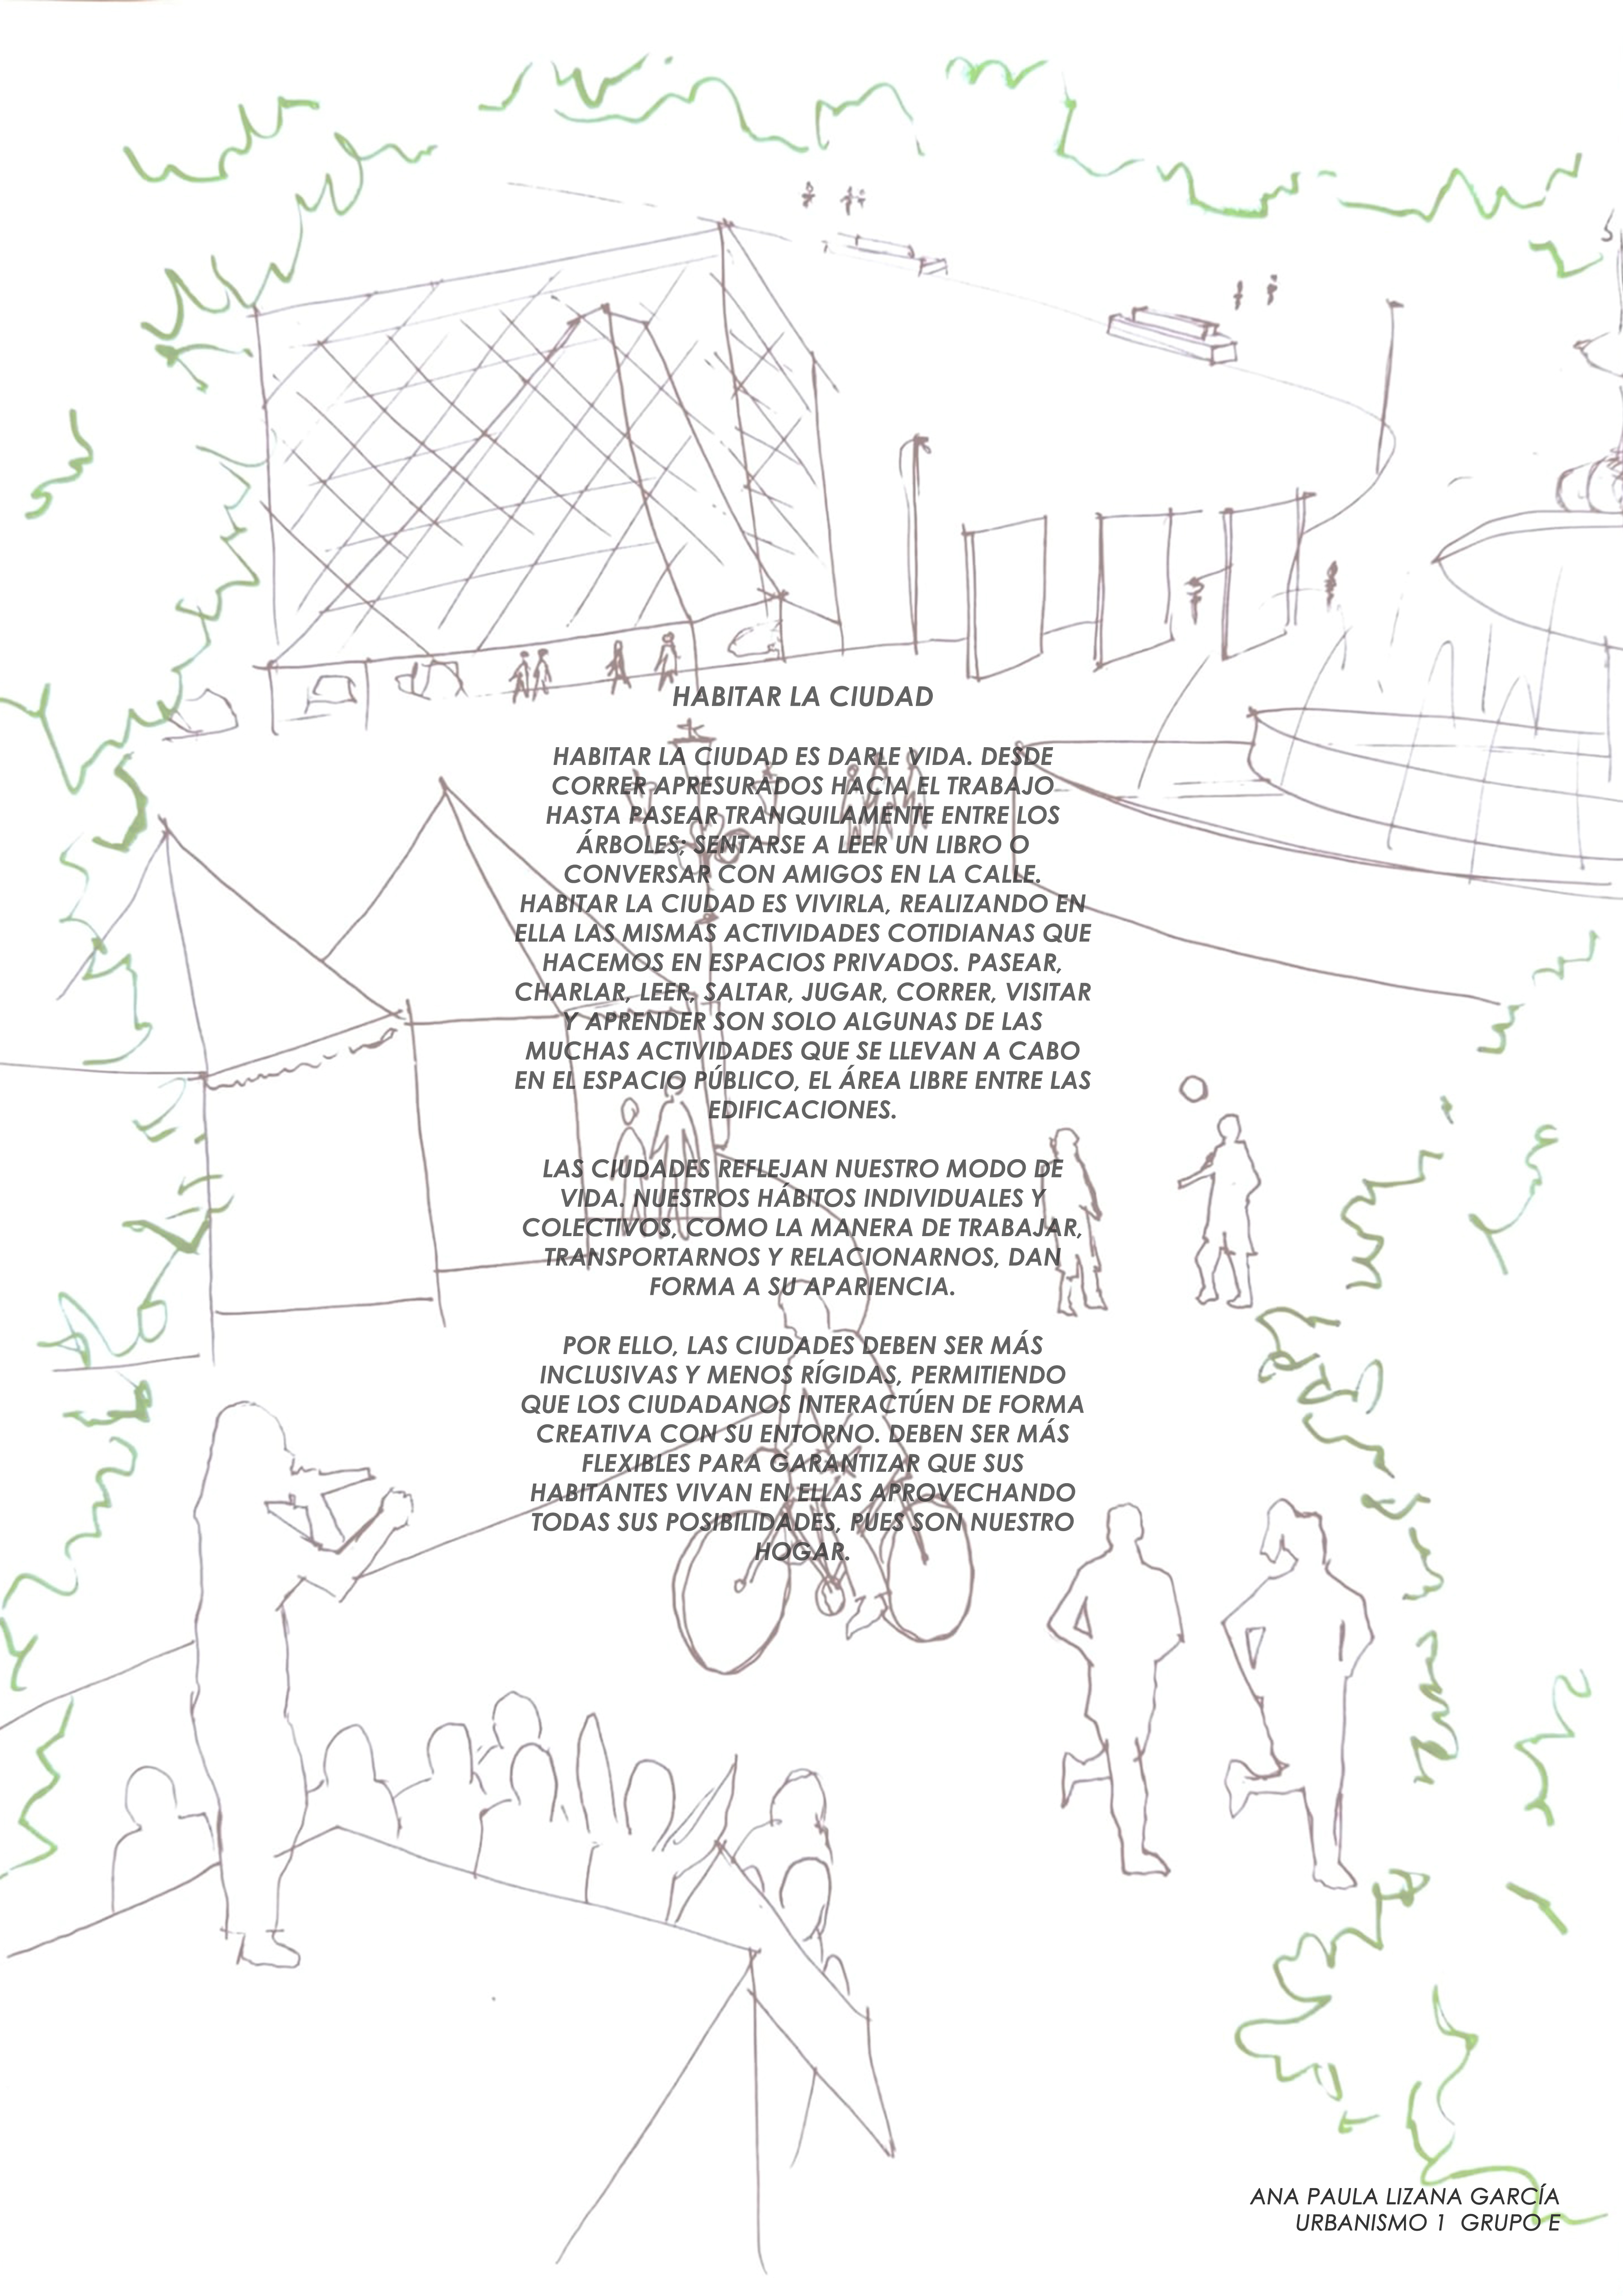 HABITAR LA CIUDAD
HABITAR LA CIUDAD ES DARLE VIDA. DESDE
CORRER APRESURADOS HACIA EL TRABAJO
HASTA PASEAR TRANQUILAMENTE ENTRE LOS
ÁRBOLES; SENTARSE A LEER UN LIBRO O
CONVERSAR CON AMIGOS EN LA CALLE.
HABITAR LA CIUDAD ES VIVIRLA, REALIZANDO EN
ELLA LAS MISMAS ACTIVIDADES COTIDIANAS QUE
HACEMOS EN ESPACIOS PRIVADOS. PASEAR,
CHARLAR, LEER, SALTAR, JUGAR, CORRER, VISITAR
Y APRENDER SON SOLO ALGUNAS DE LAS
MUCHAS ACTIVIDADES QUE SE LLEVAN A CABO
EN EL ESPACIO PÚBLICO, EL ÁREA LIBRE ENTRE LAS
EDIFICACIONES.
LAS CIUDADES REFLEJAN NUESTRO MODO DE
VIDA. NUESTROS HÁBITOS INDIVIDUALES Y
COLECTIVOS, COMO LA MANERA DE TRABAJAR,
TRANSPORTARNOS Y RELACIONARNOS, DAN
FORMA A SU APARIENCIA.
POR ELLO, LAS CIUDADES DEBEN SER MÁS
INCLUSIVAS Y MENOS RÍGIDAS, PERMITIENDO
QUE LOS CIUDADANOS INTERACTÚEN DE FORMA
CREATIVA CON SU ENTORNO. DEBEN SER MÁS
FLEXIBLES PARA GARANTIZAR QUE SUS
HABITANTES VIVAN EN ELLAS APROVECHANDO
TODAS SUS POSIBILIDADES, PUES SON NUESTRO
HOGAR.
ANA PAULA LIZANA GARCÍA
URBANISMO 1 GRUPO E